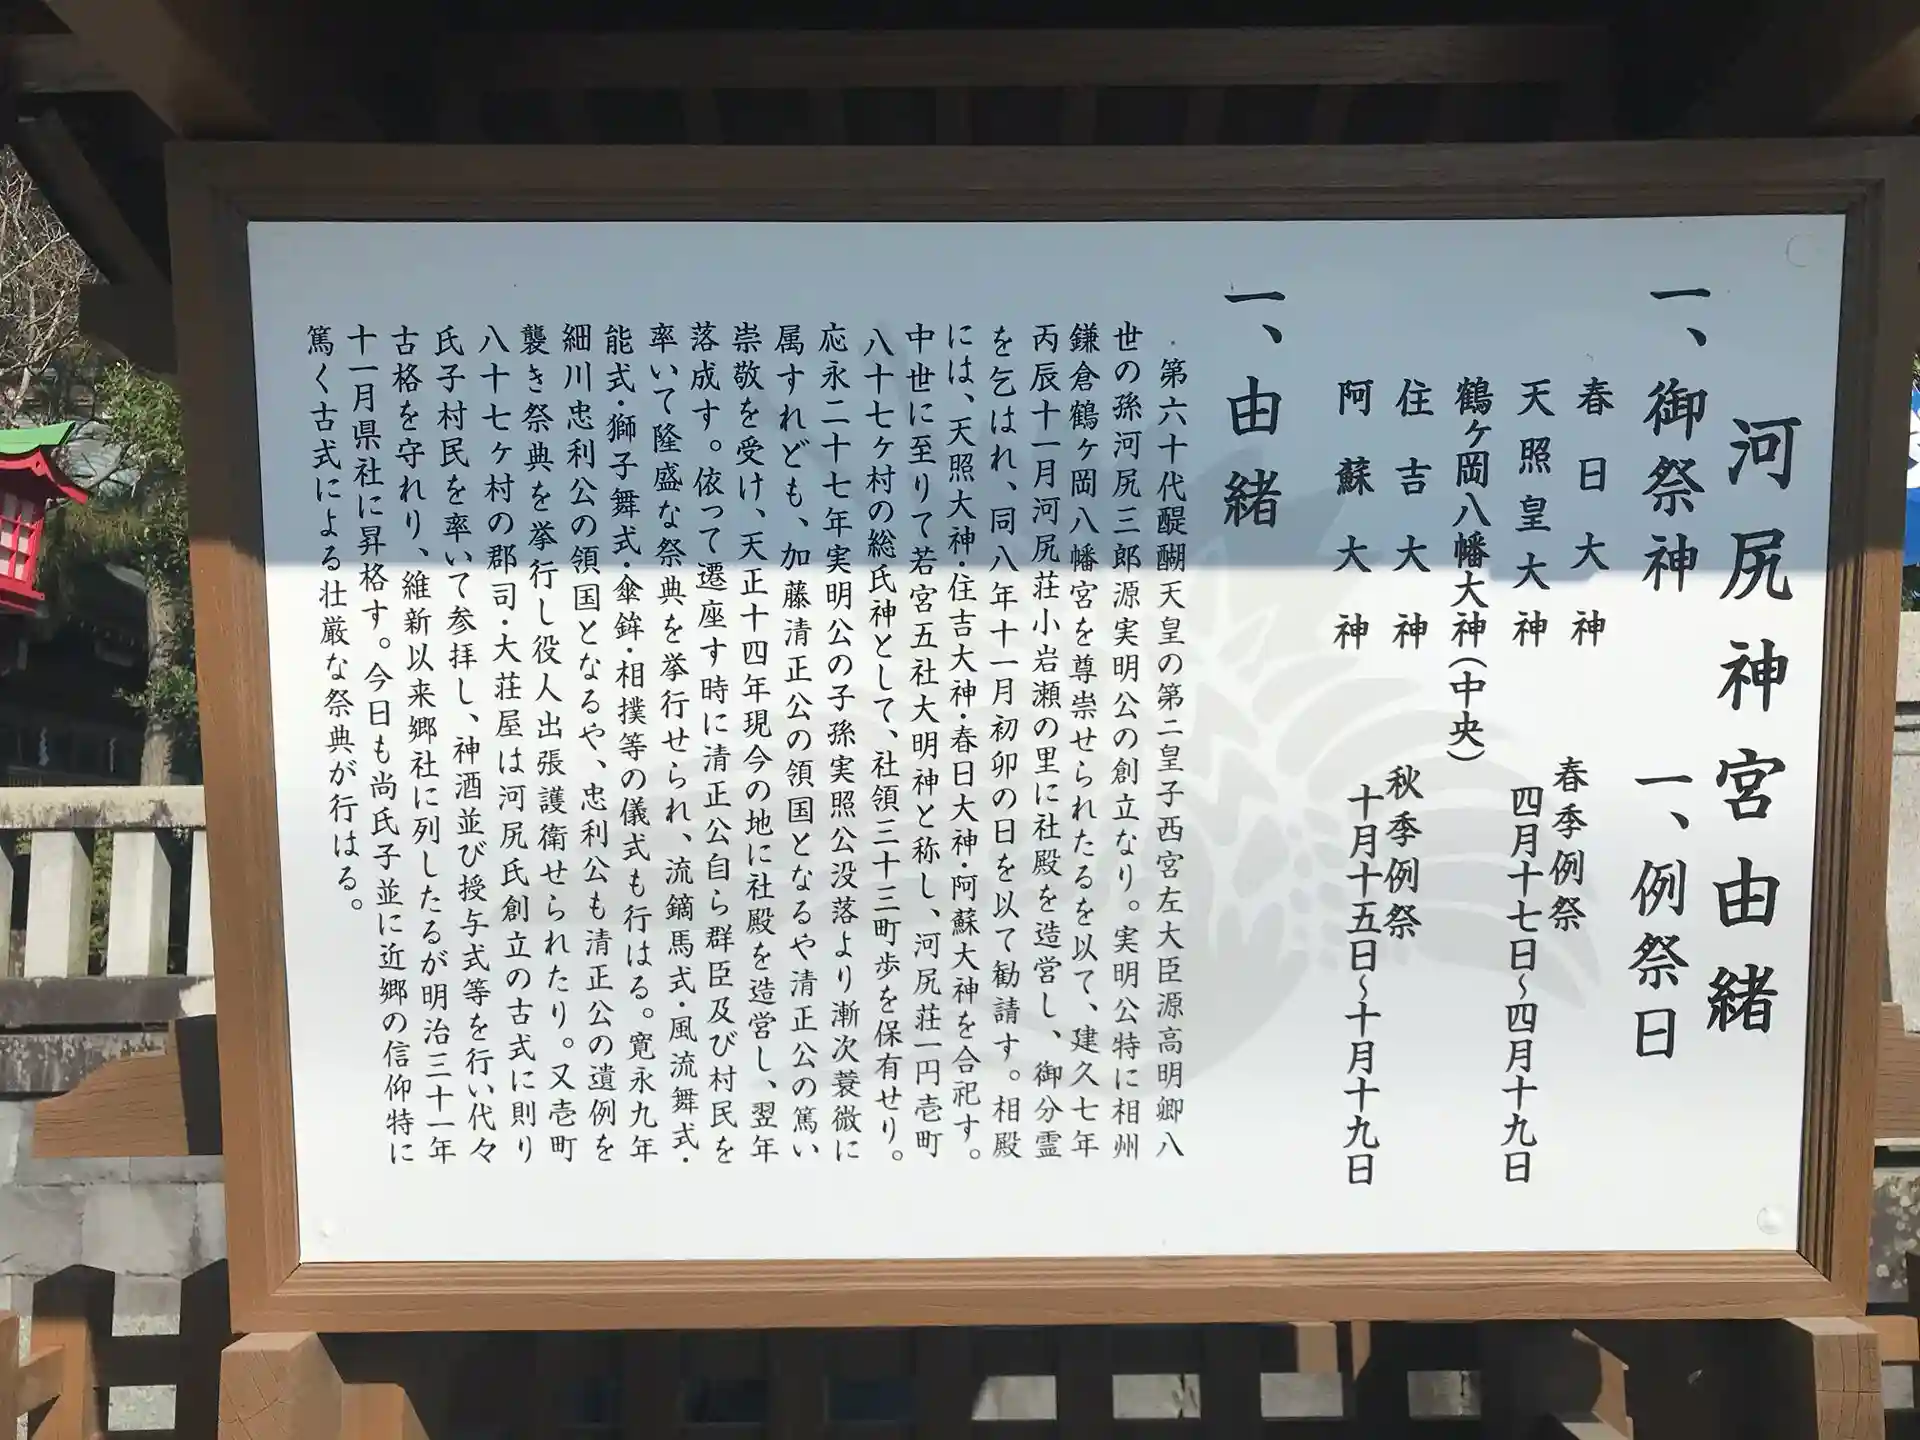 河尻神宮由緒
一、御祭神
一、例祭日
春日大神
天照皇大神
鶴ヶ岡八幡大神(中央)
住吉大神
阿蘇大神
春季例祭
四月十七日～四月十九日
秋季例祭
十月十五日～十月十九日
一、由緒
第六十代醍醐天皇の第二皇子西宮左大臣源高明卿八
世の孫河尻三郎源実明公の創立なり。実明公特に相州
鎌倉鶴ヶ岡八幡宮を尊崇せられたるを以て、建久七年
丙辰十一月河尻荘小岩瀬の里に社殿を造営し、御分霊
を乞はれ、同八年十一月初卯の日を以て勧請す。相殿
には、天照大神・住吉大神・春日大神・阿蘇大神を合祀す。
中世に至りて若宮五社大明神と称し、河尻荘一円壱町
八十七ヶ村の総氏神として、社領三十三町歩を保有せり。
応永二十七年実明公の子孫実照公没落より漸次蓑微に
属すれども、加藤清正公の領国となるや清正公の篤い
崇敬を受け、天正十四年現今の地に社殿を造営し、翌年
落成す。依って遷座す時に清正公自ら群臣及び村民を
率いて隆盛な祭典を挙行せられ、流鏑馬式・風流舞式・
能式・獅子舞式・傘鉾・相撲等の儀式も行はる。寛永九年
細川忠利公の領国となるや、忠利公も清正公の遺例を
襲き祭典を挙行し役人出張護衛せられたり。又壱町
八十七ヶ村の郡司・大荘屋は河尻氏創立の古式に則り
氏子村民を率いて参拝し、神酒並び授与式等を行い代々
古格を守れり、維新以来郷社に列したるが明治三十一年
十一月県社に昇格す。今日も尚氏子並に近郷の信仰特に
篤く古式による壮厳な祭典が行はる。